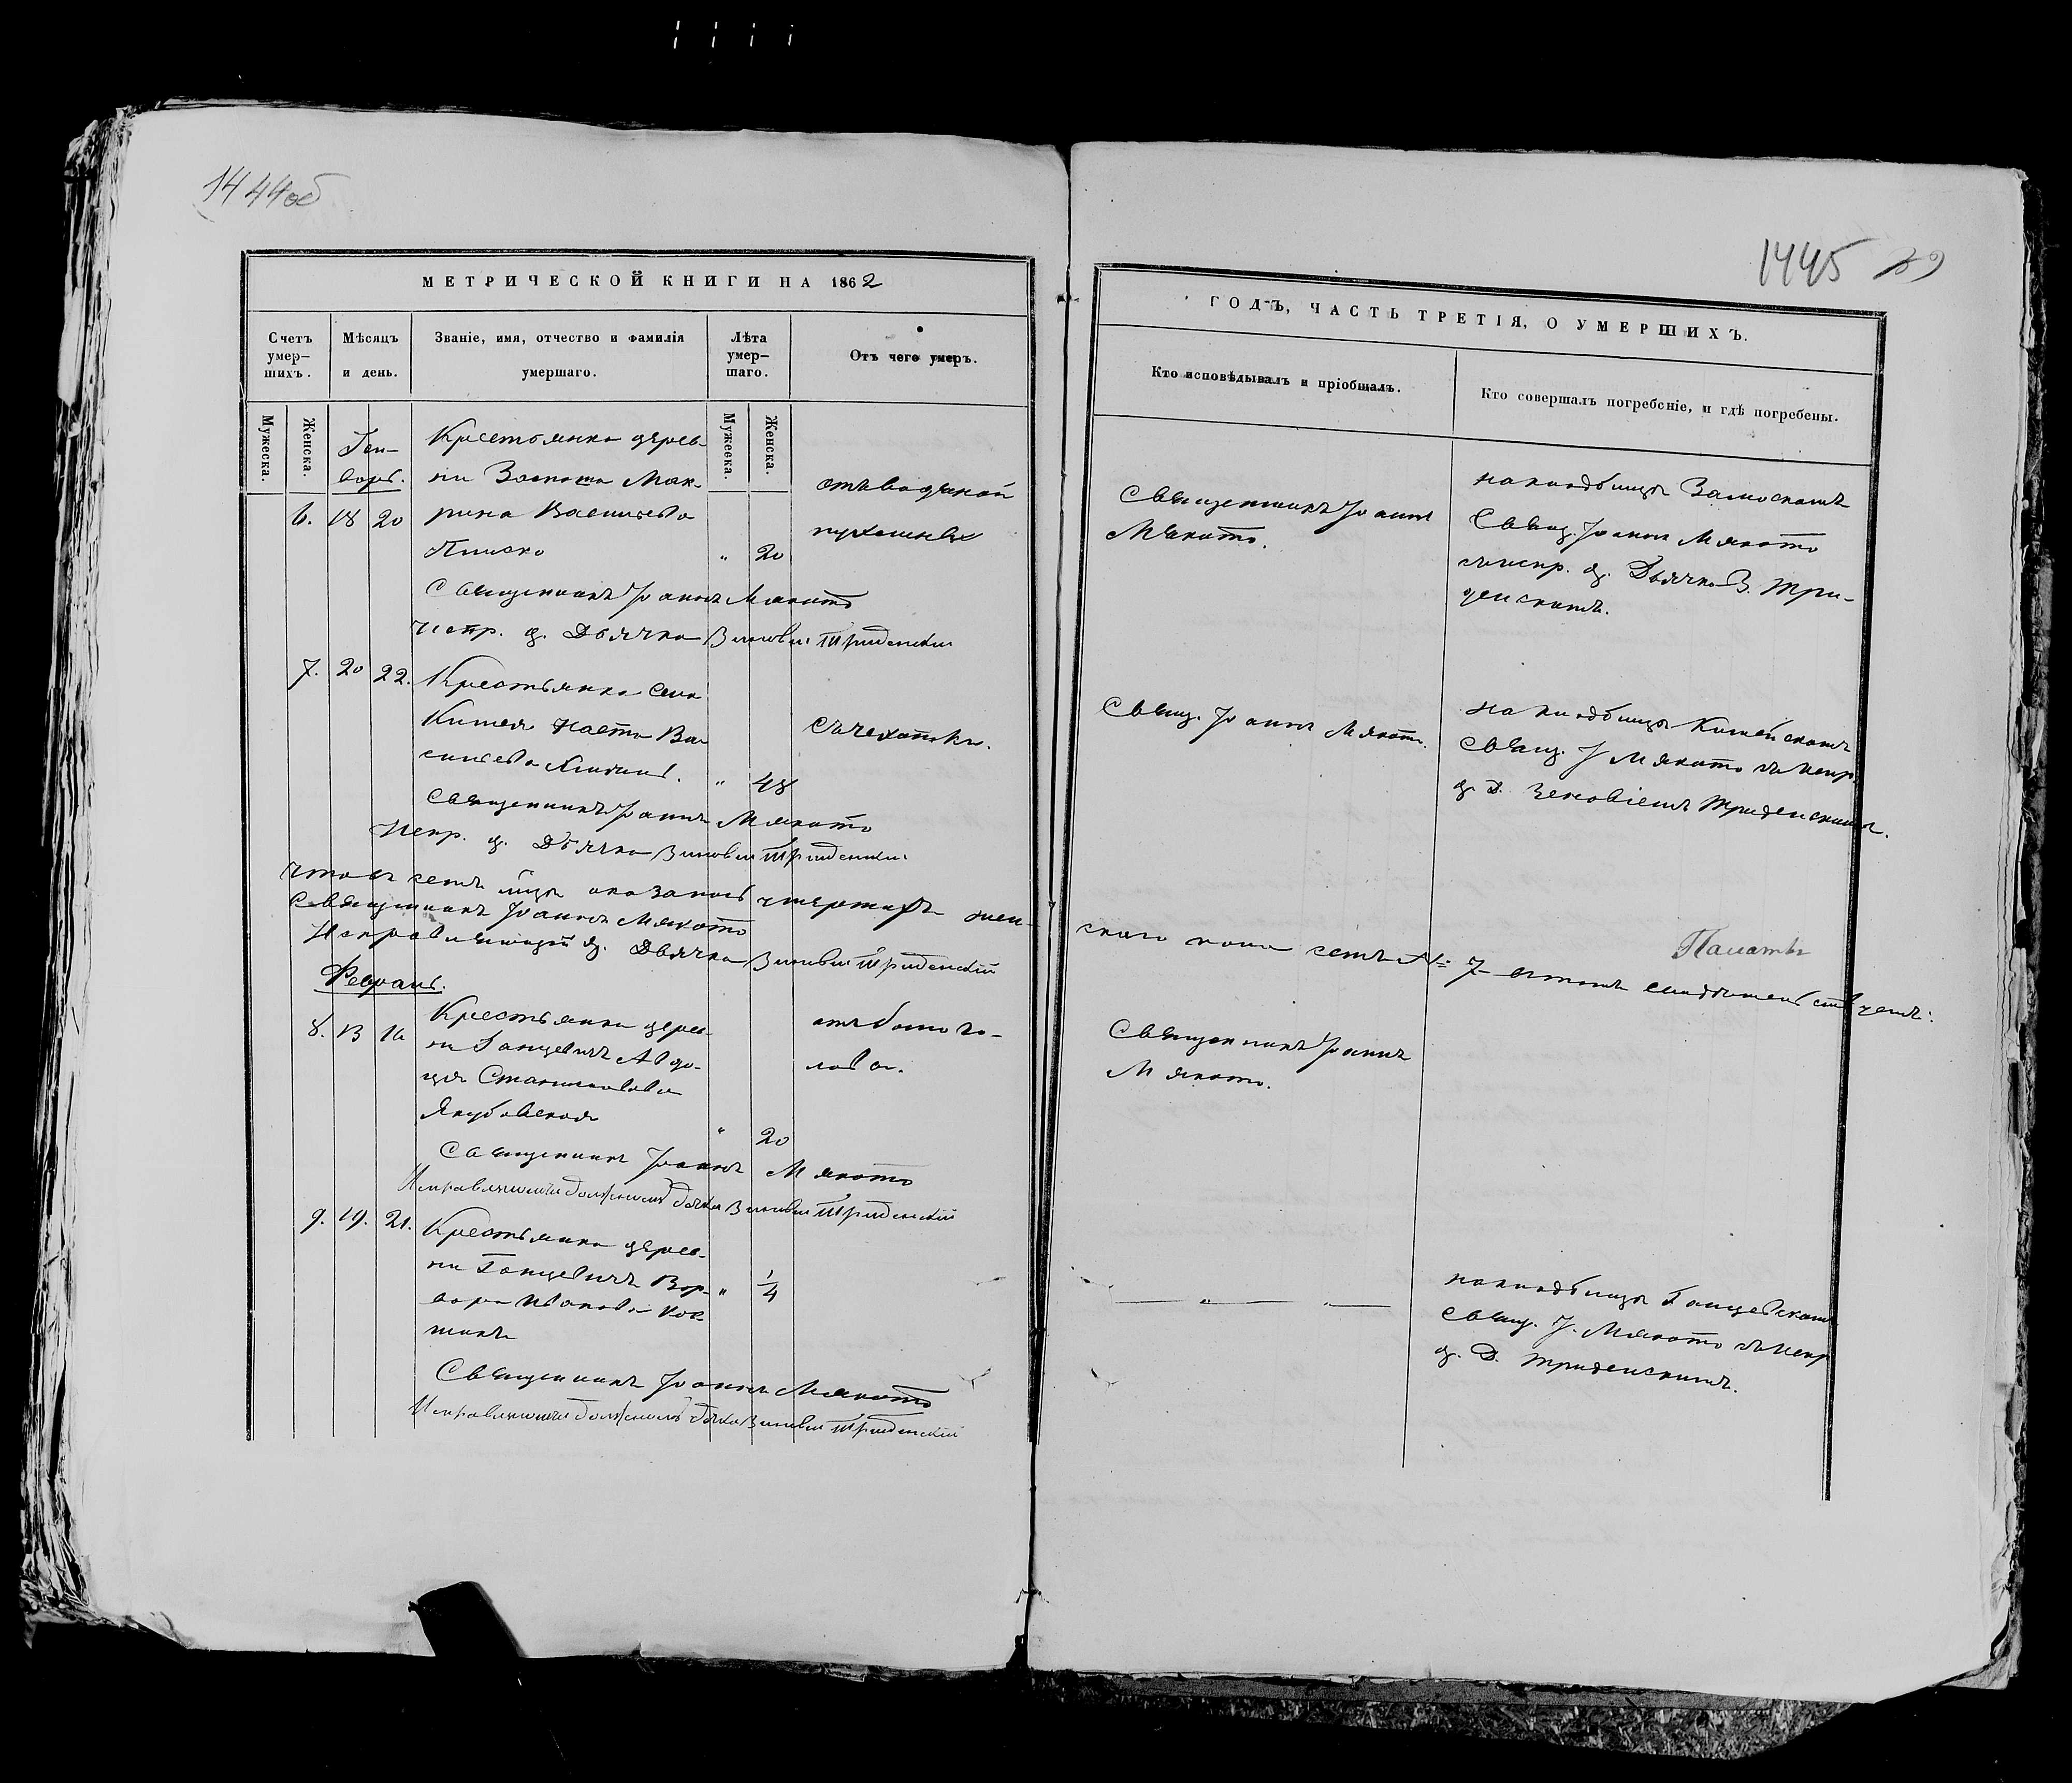 1444об
МЕТРИЧЕСКОЙ КНИГИ НА 1862
Счетъ умер–шихъ.
Мѣсяцъ и день.
Званіе, имя, отчество и фамилія умершаго.
Лѣта умер–шаго.
Отъ чего умеръ.
Мужеска.
Женска.
Мужеска.
Женска.
Ген–
варь.
6. 18 20
Крестьянка дерев
ни Замоша Мак–
рина Васильева
" 20
отъ водяной
Священникъ Іоаннъ Мякото
Испр. д. Дьячка Зиновій Триденскій
7. 20 22.
Крестьянка села
Настя Ва
сильева
" 48
съ чахотки.
Священникъ Іоаннъ Мякото
Испр. д. Дьячка Зиновій Триденскій
Что въ семъ м-цѣ оказалось умершихъ жен–
Священникъ Іоаннъ Мякото
Исправляющій д. Дьячка Зиновій Триденскій
Февраль.
8. 13 16
Крестьянка дерев–
ни Ганцевичъ Авдо–
ція Станиславова
Якубовская
" 20
отъ боли го–
ловы.
Священникъ Іоаннъ Мякото
Исправляющій должность дьячка Зиновій Триденскій
9. 19. 21.
Крестьянка дерев–
ни Ганцевичъ Вар–
вара Иванова
" 1/4
Священникъ Іоаннъ Мякото
Исправляющій должность дьячка Зиновій Триденскій
1445
ГОДЪ, ЧАСТЬ ТРЕТІЯ, О УМЕРШИХЪ.
Кто исповѣдывалъ и пріобщалъ.
Кто совершалъ погребеніе, и гдѣ погребены.
Священникъ Іоаннъ
Мякото.
на кладбищѣ Замоскомъ
Свящ. Іоаннъ Мякото
съ испр. д. Дьячка З. Три–
денскимъ.
Свящ. Іоаннъ Мякото.
на кладбищѣ
Свящ. І. Мякото съ испр.
д. Д. Зеновіемъ Триденскимъ.
скаго пола семь № 7 въ томъ свидѣтельствуемъ:
Священникъ Іоаннъ
Мякото.
— " — " —
на кладбищѣ Ганцевскомъ
свящ. І. Мякото съ испр
д. Д. Триденскимъ.